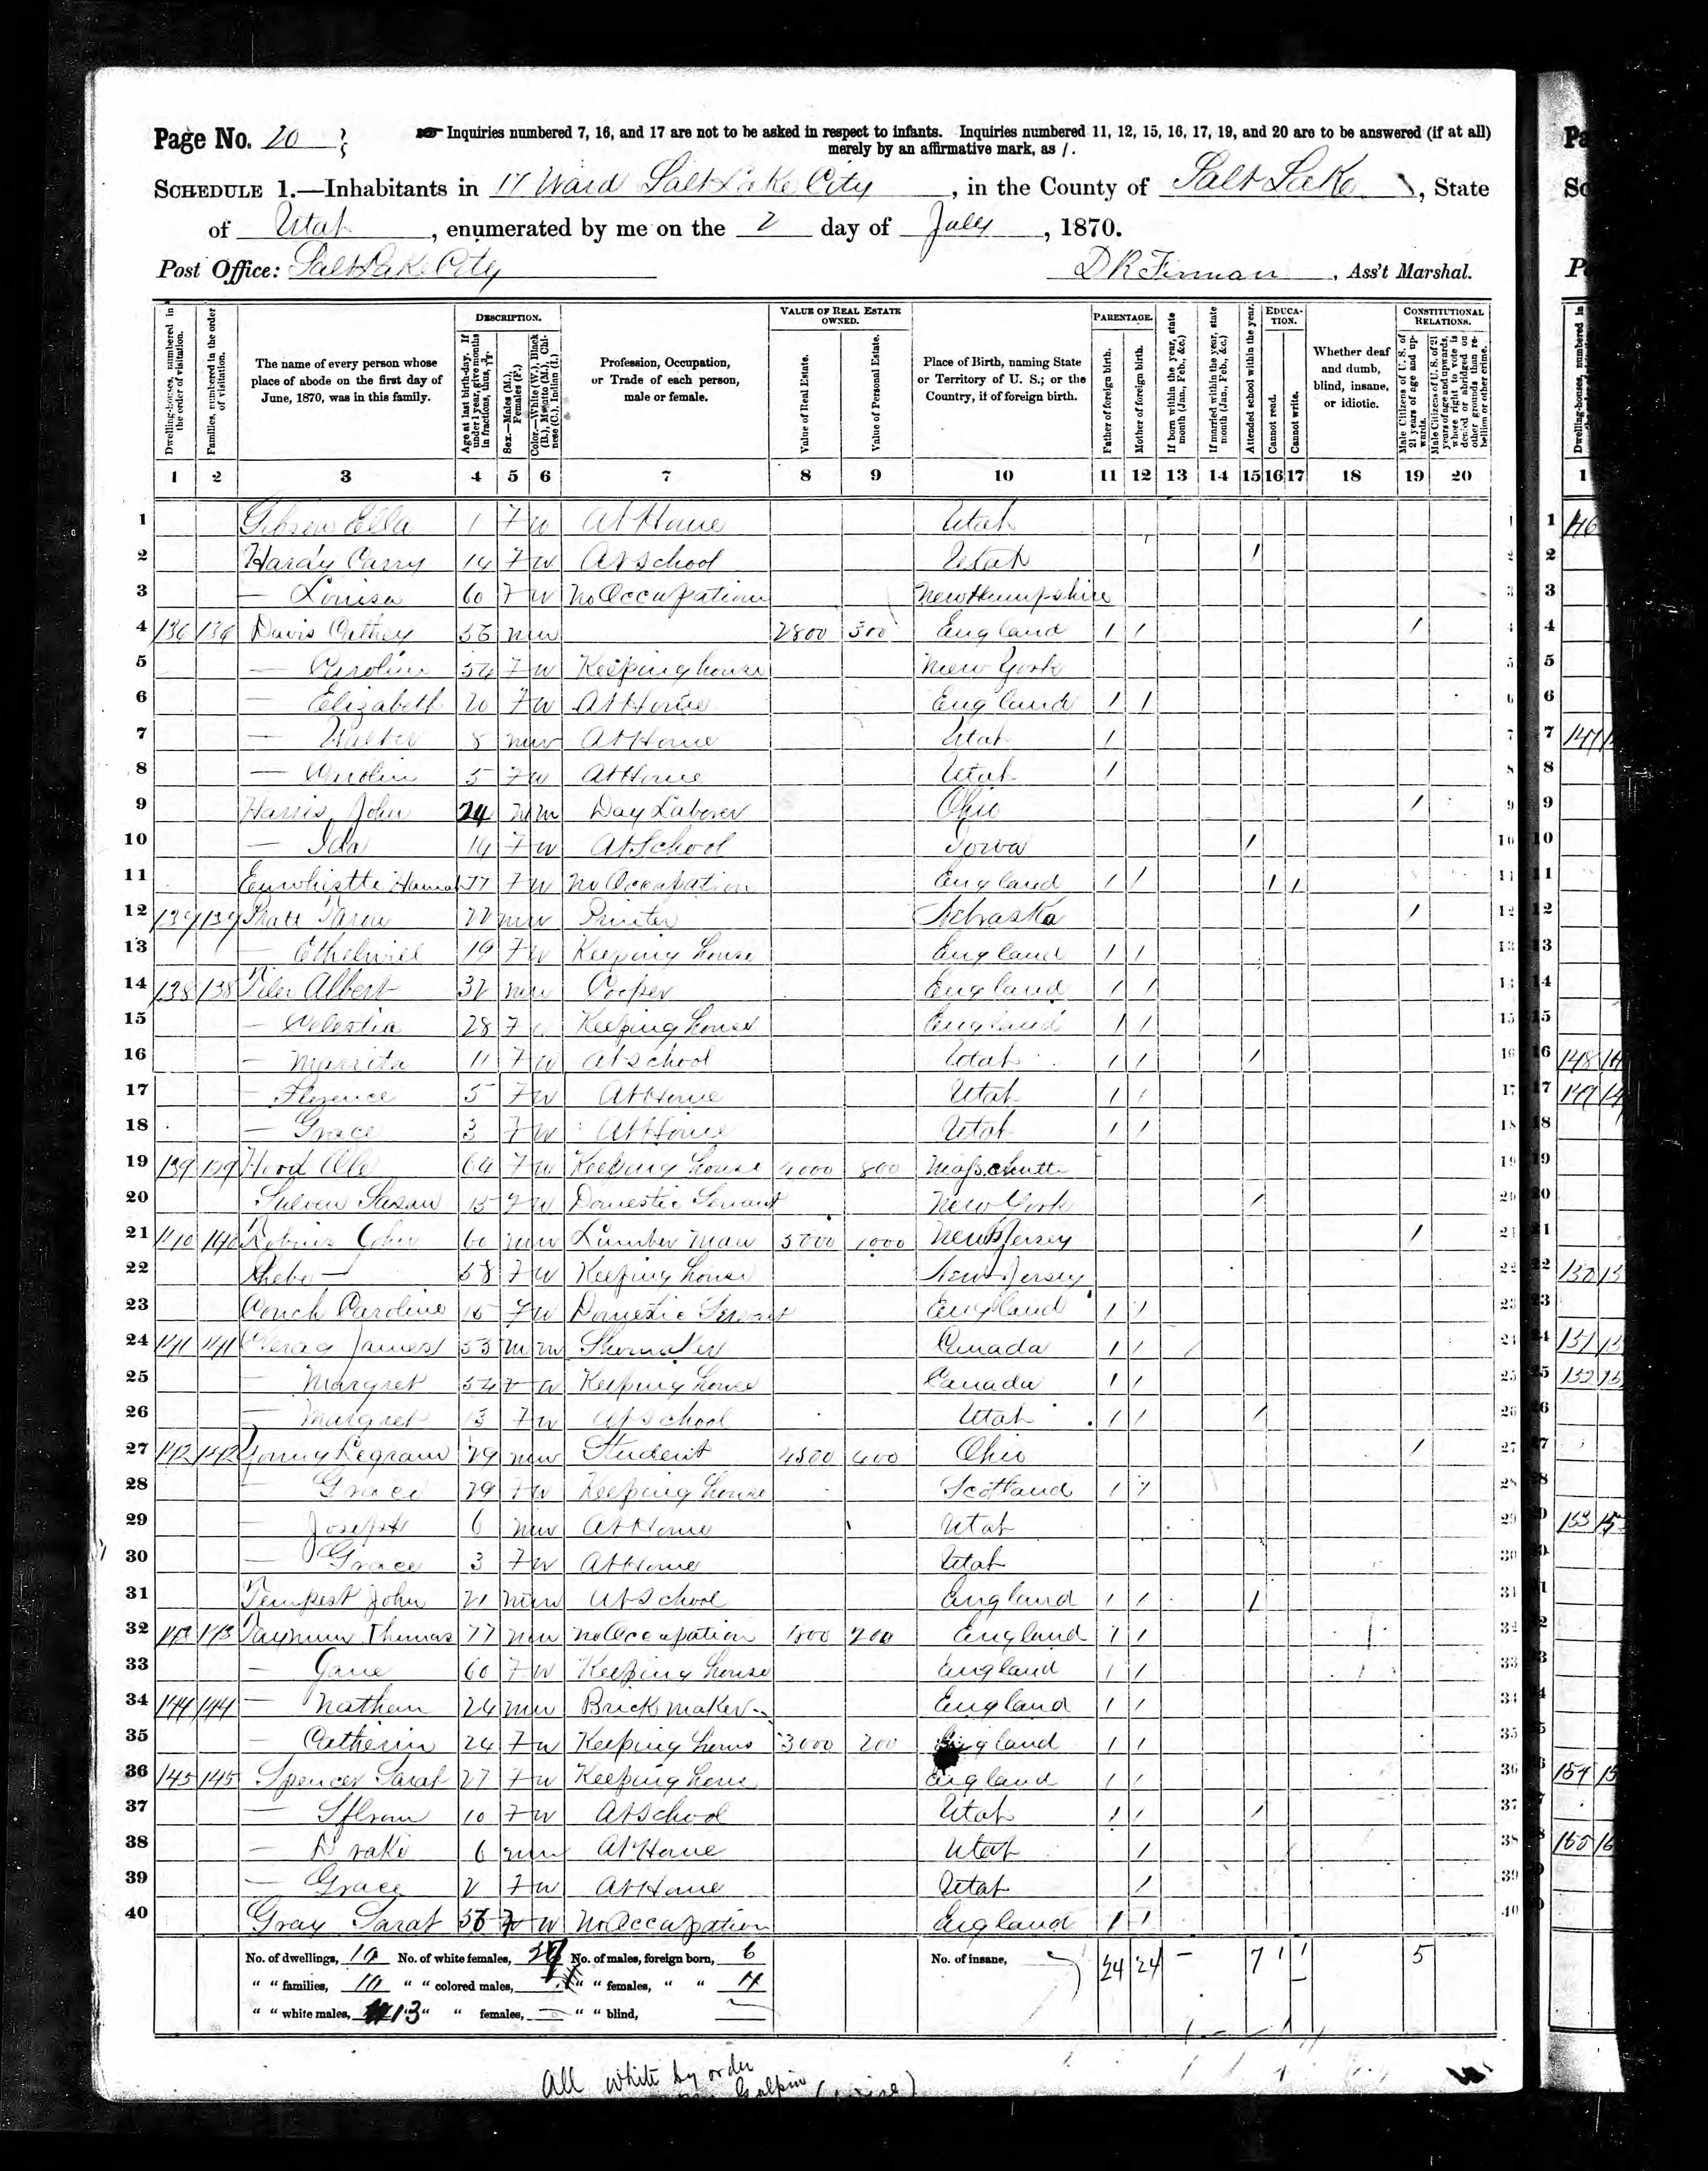 Page No. 20
☞ Inquiries numbered 7, 16, and 17 are not to be asked in respect to infants. Inquiries numbered 11, 12, 15, 16, 17, 19, and 20 are to be answered (if at all)
merely by an affirmative mark, as /.
SCHEDULE 1.—Inhabitants in 17 Ward Salt Lake City, in the County of Salt Lake, State
of Utah, enumerated by me on the 2 day of July, 1870.
Post Office: Salt Lake City
D R Firman, Ass't Marshal.
Dwelling-houses, numbered in the order of visitation.
Families, numbered in the order of visitation.
The name of every person whose place of abode on the first day of June, 1870, was in this family.
DESCRIPTION.
Age at last birth-day. If under 1 year, give months in fractions, thus, 3/12.
Sex.—Males (M.), Females (F.)
Color.—White (W.), Black (B.), Mulatto (M.), Chinese (C.), Indian (I.)
Profession, Occupation, or Trade of each person, male or female.
VALUE OF REAL ESTATE OWNED.
Value of Real Estate.
Value of Personal Estate.
Place of Birth, naming State or Territory of U. S.; or the Country, if of foreign birth.
PARENTAGE.
Father of foreign birth.
Mother of foreign birth.
If born within the year, state month (Jan., Feb., &c.)
If married within the year, state month (Jan., Feb., &c.)
Attended school within the year.
EDUCATION.
Cannot read.
Cannot write.
Whether deaf and dumb, blind, insane, or idiotic.
CONSTITUTIONAL RELATIONS.
Male Citizens of U. S. of 21 years of age and upwards.
Male Citizens of U. S. of 21 years of age and upwards, whose right to vote is denied or abridged on other grounds than rebellion or other crime.
1 2 3 4 5 6 7 8 9 10 11 12 13 14 15 16 17 18 19 20
1 Gibson Ella 1 F W At Home Utah
2 Hardy Carry 14 F W At School Utah /
3 — Louisa 60 F W No Occupation New Hampshire
4 136 136 Davis 56 M W 2800 300 England / / /
5 — Carolin 54 F W Keeping house New York
6 — Elizabeth 20 F W At Home England / /
7 — Walter 8 M W At Home Utah /
8 — Carolin 5 F W At Home Utah /
9 Harris John 24 M M Day Laborer Ohio /
10 — Ida 14 F W At School Iowa /
11 Hannah 77 F W No Occupation England / / / /
12 137 137 22 M W Printer Nebraska /
13 — 19 F W Keeping house England / /
14 138 138 Albert 32 M W Cooper England / /
15 — Celestia 28 F W Keeping house England / /
16 — 11 F W At School Utah / / /
17 — Florence 5 F W At Home Utah / /
18 — Grace 3 F W At Home Utah / /
19 139 139 64 F W Keeping house 4000 800
20 Susan 15 F W Domestic Servant New York /
21 140 140 Robins John 60 M W Lumber man 5000 1000 New Jersey /
22 Phebe — 58 F W Keeping house New Jersey
23 Couch Caroline 15 F W Domestic Servant England / /
24 141 141 James 53 M M Shomaker Canada / /
25 — Margret 54 F W Keeping house Canada / /
26 — Margret 13 F W At School Utah / / /
27 142 142 Young Legram 29 M W Student 4500 400 Ohio /
28 — Grace 29 F W Keeping house Scotland / /
29 — Joseph 6 M W At Home Utah
30 — Grace 3 F W At Home Utah
31 Tempest John 21 M W At School England / / /
32 143 143 Thomas 77 M W No Occupation 1800 200 England / /
33 — Jane 60 F W Keeping house England / /
34 144 144 — Nathan 24 M W Brick maker England / /
35 — Catherin 24 F W Keeping house 3000 200 England / /
36 145 145 Spencer Sarah 27 F W Keeping house England / /
37 — 10 F W At School Utah / / /
38 — Drake 6 M W At Home Utah /
39 — Grace 2 F W At Home Utah /
40 Gray Sarah 56 F W No Occupation England / /
No. of dwellings, 10 No. of white females, No. of males, foreign born, 6 No. of insane, 24 24 – 7 1 1 5
" " families, 10 " " colored males, " " females, " "
" " white males, 13 " " females, — " " blind,
All white by order